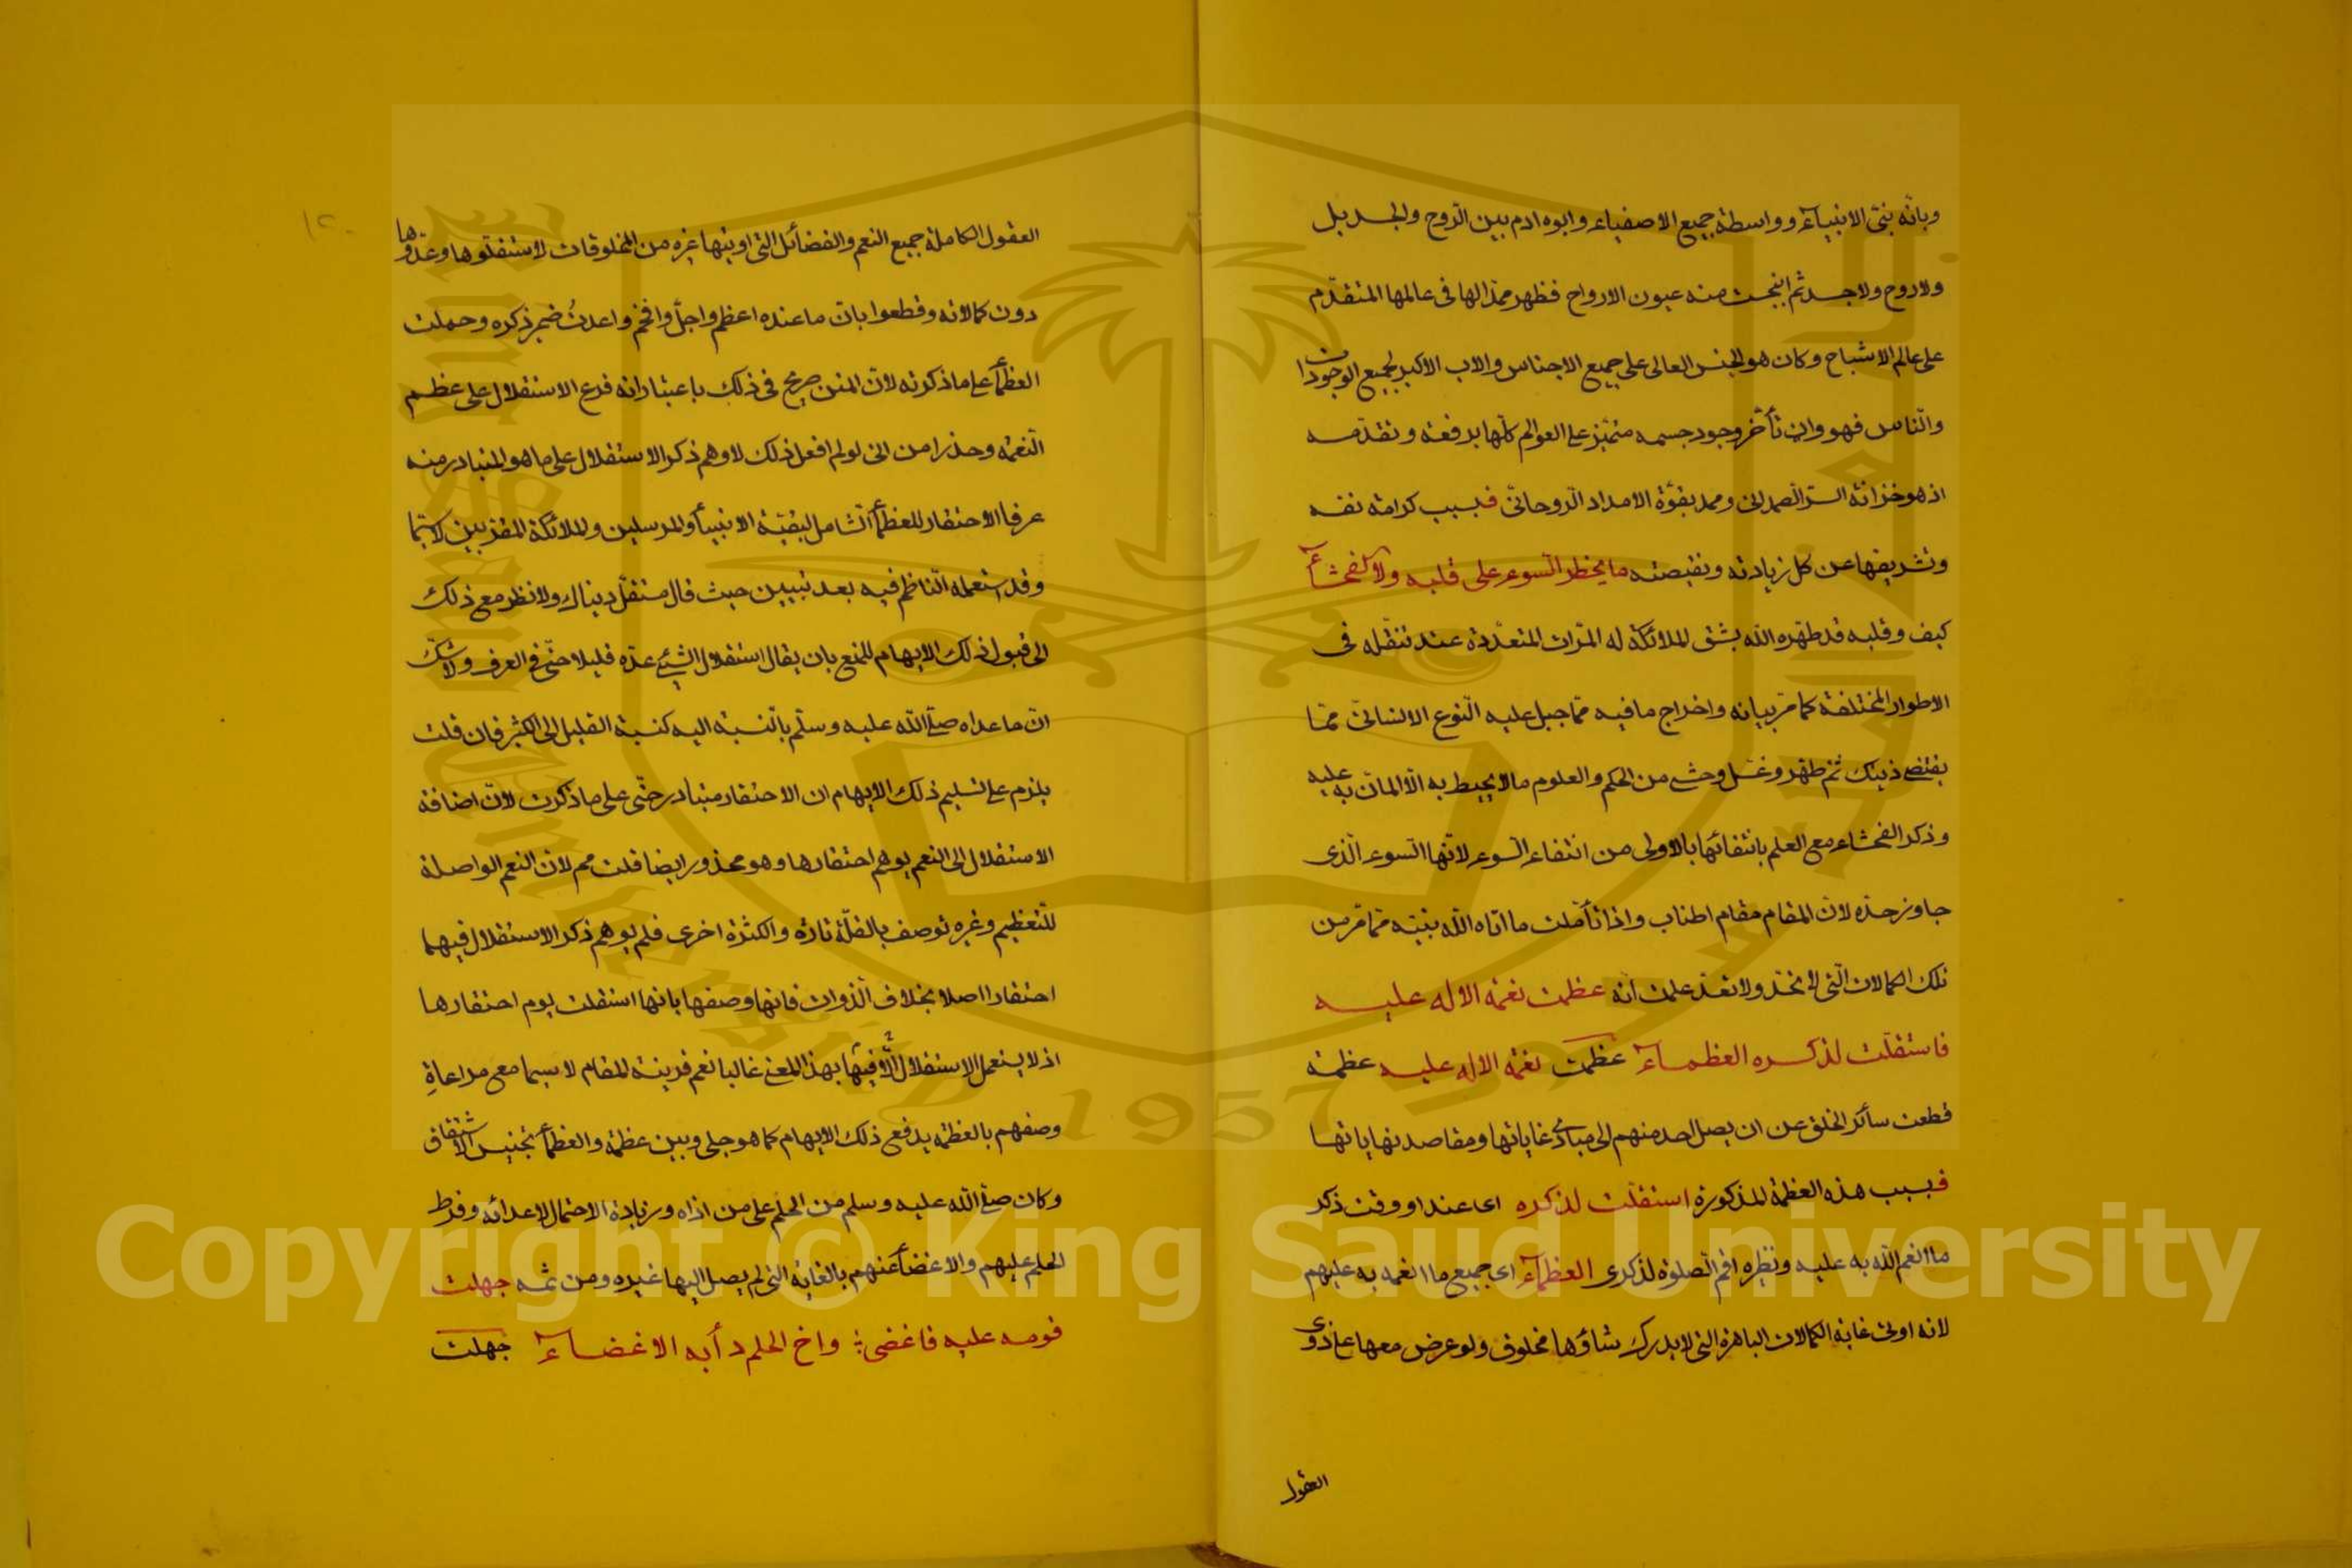 وبانه نبى الانبياء وواسطة جميع الاصفياء وابوه ادم بين الروح والجسد بل
ولا روح ولا جسد ثم انبجست منه عيون الارواح فظهر ممدا لها فى عالمها المتقدم
على عالم الاشباح وكان هو الجنس العالى على جميع الاجناس والاب الاكبر لجميع الموجودات
والناس فهو وان تأخر وجود جسمه متميز على العوالم كلها برفعته وتقدمه
اذ هو خزانة السر الصمدانى وممد بقوة الامداد الروحانى فبسبب كرامة نفسه
وتشريفها عن كل زيادته ونقيصته ما يخطر السوء على قلبه ولا الفحشاء
كيف وقلبه قد طهره الله بشق الملائكة له المرات المتعددة عند تنقله فى
الاطوار المختلفة كما مر بيانه واخراج ما فيه مما جبل عليه النوع الانسانى مما
يقتضى ذينك ثم طهر وغسل وحشى من الحكم والعلوم ما لا يحيط به الا المان به عليه
وذكر الفحشاء مع العلم بانتفائها بالاولى من انتفاء السوء لانها السوء الذى
جاوز حده لان المقام مقام اطناب واذا تأملت ما اتاه الله نبيه مما مر من
تلك الكمالات التى لا تحد ولا تعد علمت انه عظمت نعمة الاله عليه
فاستقلت لذكره العظماء عظمت نعمة الاله عليه عظمة
قطعت سائر الخلق عن ان يصل احد منهم الى مبادئ غاياتها ومقاصد نهاياتها
فبسبب هذه العظمة المذكورة استقلت لذكره اى عند او وقت ذكر
ما انعم الله به عليه ونظيره اقم الصلوة لذكرى العظماء اى جميع ما انعم به عليهم
لانه اوتى غاية الكمالات الباهرة التى لا يدرك شاؤها مخلوق ولو عرض معها على ذوى
العقول
١٢٠
العقول الكاملة جميع النعم والفضائل التى اوتيها غيره من المخلوقات لاستقلوها وعدوها
دون كمالاته وقطعوا بان ما عنده اعظم واجل وافخم واعدت ضمير ذكره وحملت
العظماء على ما ذكرته لان المتن صريح فى ذلك باعتبار انه فرع الاستقلال على عظم
النعمة وحذرا من انى لو لم افعل ذلك لاوهم ذكر الاستقلال على ما هو المتبادر منه
عرفا الاحتقار للعظماء الشامل لبقية الانبياء والمرسلين والملائكة المقربين لا سيما
وقد استعمله الناظم فيه بعد بيتين حيث قال مستقل دنياك ولا نظر مع ذلك
الى قبول ذلك الايهام للمنع بان يقال استقلال الشيء عده قليلا حتى فى العرف ولا شك
ان ما عداه صلى الله عليه وسلم بالنسبة اليه كنسبة القليل الى الكثير فان قلت
يلزم على تسليم ذلك الايهام ان الاحتقار متبادر حتى على ما ذكرت لان اضافة
الاستقلال الى النعم يوهم احتقارها وهو محذور ايضا قلت مم لان النعم الواصلة
للتعظيم وغيره توصف بالقلة تارة والكثرة اخرى فلم يوهم ذكر الاستقلال فيها
احتقارا اصلا بخلاف الذوات فانها وصفها بانها استقلت يوم احتقارها
اذ لا يستعمل الاستقلال الا فيها بهذا المعنى غالبا نعم قرينة المقام لا سيما مع مراعاة
وصفهم بالعظمة يدفع ذلك الايهام كما هو جلى وبين عظمة والعظماء تجنيس الاشتقاق
وكان صلى الله عليه وسلم من الحلم على من اذاه وزيادة الاحتمال لاعدائه وفرط
الحلم عليهم والاغضاء عنهم بالغاية التى لم يصل اليها غيره ومن ثمه جهلت
قومه عليه فاغضى واخ الحلم دأبه الاغضاء جهلت